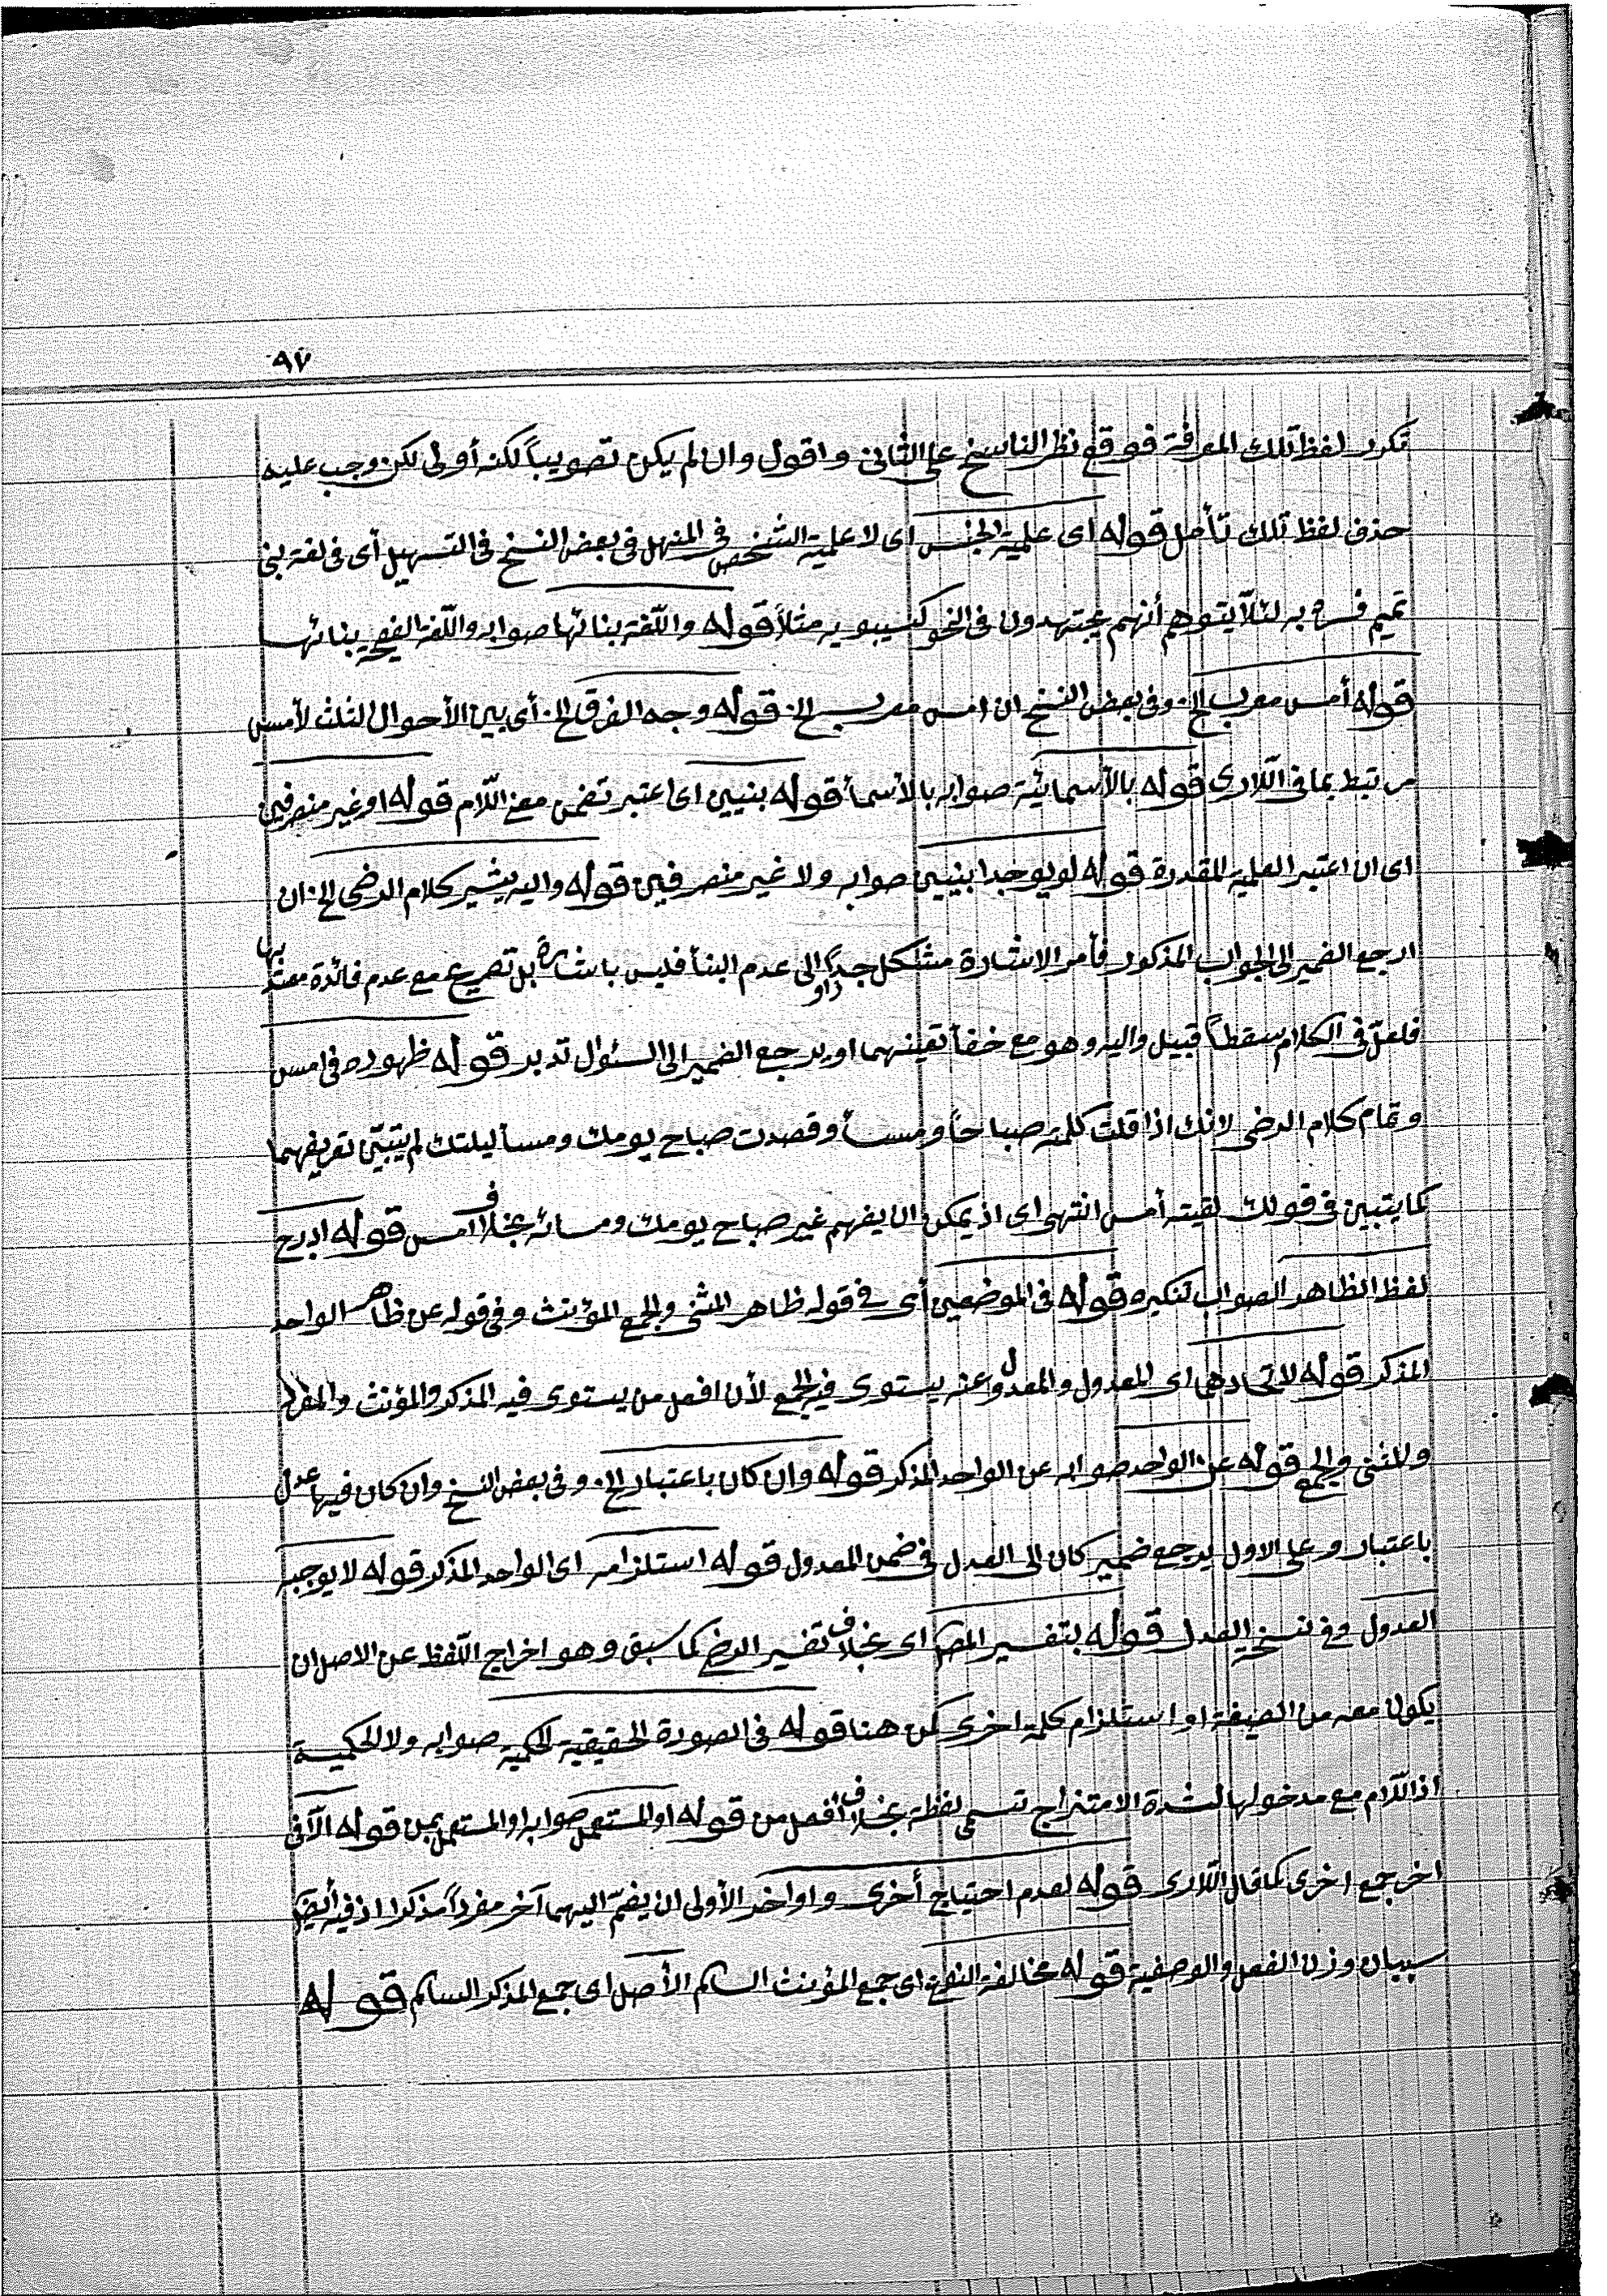 ٩٧
تكرر لفظ تلك المعرفة فوقع نظر الناسخ على الثانى واقول وان لم يكن تصويباً لكنه أولى لكن وجب عليه
حذف لفظ تلك تأمل قوله اى علمية الجنس اى لا علمية الشخص فى المنهل فى بعض النسخ فى التسهيل أى فى لغة بنى
تميم به لئلّا يتوهم أنهم مجتهدون فى النحو كسيبويه مثلاً قوله واللّغة بنائها صوابه واللّغة الفصيحة بنائها
قوله أمس معرب الخ وفى بعض النسخ ان امس معرب الخ قوله وجه الفرق الخ أى بين الأحوال الثلث لأمس
مرتبط بما فى اللّارى قوله بالأسمائية صوابه بالأسمأ قوله بنيين اى اعتبر تضمن معنى اللّام قوله او غير منصرفين
اى ان اعتبر العلمية المقدرة قوله لو يوجدا بنيين صوابه ولا غير منصرفين قوله واليه يشير كلام الرضى الخ ان
ارجع الضمير الى الجواب المذكور فأمر الاشارة مشكل جداً الى عدم البنأ فليس باشارة بل تصريح مع عدم فائدة معتد بها
فلعل فى الكلام سقطاً قبيل واليه وهو مع خفأ تعينهما او يرجع الضمير الى السئوال تدبر قوله ظهوره فى امس
وتمام كلام الرضى لانك اذا قلت كلمة صباحاً ومسأ وقصدت صباح يومك ومسأ ليلتك لم يتبيّن تعريفهما
كما يتبين فى قولك لقيته أمس انتهى اى اذ يمكن ان يفهم غير صباح يومك ومسائه بخلاف امس قوله ادرج
لفظ الظاهر الصواب تنكيره قوله فى الموضعين أى فى قوله ظاهر المثنى والجمع المؤنث وفى قوله عن ظاهر الواحد
المذكر قوله لاتحادهى اى المعدول والمعدول عنه يستوى فيه الجمع لأن افعل من يستوى فيه المذكر والمؤنث والمفرد
والمثنى والجمع قوله عن الواحد صوابه عن الواحد المذكر قوله وان كان باعتبار الخ وفى بعض النسخ وان كان فيها عدل
باعتبار وعلى الاول يرجع ضمير كان الى العدل فى ضمن المعدول قوله استلزامه اى الواحد المذكر قوله لا يوجبه
العدول وفى نسخ العدل قوله بتفسير المص اى بخلاف تفسير الرضى كما سبق وهو اخراج اللّفظ عن الاصل ان
يكون معه من الصيغة او استلزام كلمة اخرى كمن هنا قوله فى الصورة الحقيقية الحكمية صوابه ولا الحكمية
اذ اللّام مع مدخولها لشدة الامتزاج تسمى لفظة بخلاف افعل من قوله او المستعمل صوابه او المستعمل بمن قوله الآتى
اخر جمع اخرى كما قال اللّارى قوله لعدم احتياج أخرى واواخر الأولى ان يضمّ اليهما آخر مفرداً مذكرا اذ فيه أيض
سببان وزن الفعل والوصفية قوله مخالفة الفرع اى جمع المؤنث السالم الأصل اى جمع المذكر السالم قوله